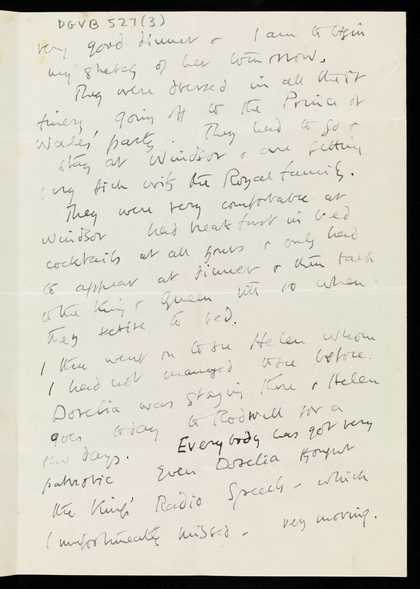 DGVB 527(3)
very good dinner & I am to begin
my sketch of her tomorrow.
They were dressed in all their
finery going off to the Prince of
Wales' party. They had to go &
stay at Windsor & are getting
very thick with the Royal family.
They were very comfortable at
Windsor had breakfast in bed
cocktails at all hours & only had
to appear at dinner & then talk
to the King & Queen till 10 when
they retire to bed.
I then went on to see Helen whom
I had not managed to see before.
Dorelia was staying there & Helen
goes today to Rodwell for a
few days. Everybody has got very
patriotic Even Dorelia thought
the King's Radio Speech - which
I unfortunately missed - very moving.